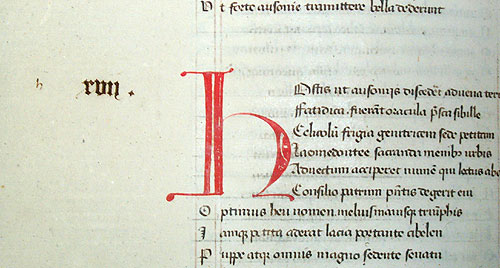 U t forte ausonie tramittere bella dederunt
h xvii.
H Ostis ut ausonijs discedet aduena terr
Ffatidica. fuerant oracula psca sibille
Celicolu frigia genitricem sede petitam
Laomedontee sacranda menibus urbis
Aduectum acciperet nume qui latus abo
Consilio patrum pntis degerit eui
O ptimus heu nomen melius maiusqz triuphis
I amqz petita aderat lacia portante cibelen
P uppe atqz omnis magno sedente senatu